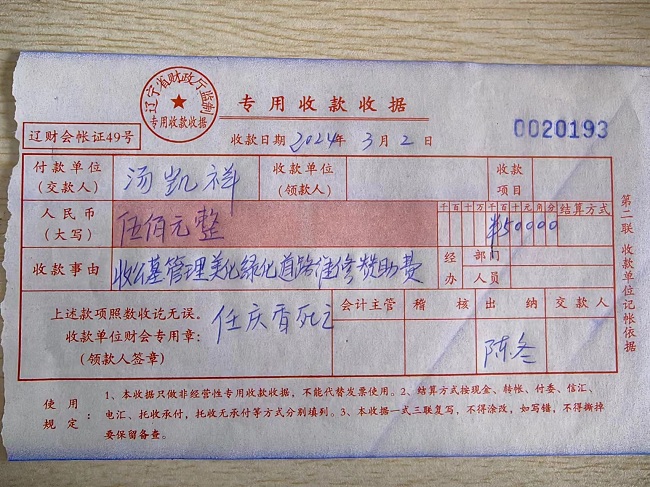 辽宁省财政厅监制
专用收款收据
专用收款收据
0020193
辽财会帐证49号
收款日期 2024年 3月 2日
付款单位
(交款人)
汤凯祥
收款单位
(领款人)
收款
项目
人民币
(大写)
伍佰元整
千百十万千百十元角分
结算方式
¥50000
收款事由
收公墓管理美化绿化道路维修赞助费
经办
部门
人员
上述款项照数收讫无误。
收款单位财会专用章:
(领款人签章)
任庆香死亡
会计主管
稽核
出纳
交款人
陈冬
第二联 收款单位记帐依据
使用规定:
1、本收据只做非经营性专用收款收据,不能代替发票使用。2、结算方式按现金、转帐、付委、信汇、
电汇、托收承付,托收无承付等方式分别填列。3、本收据一式三联复写,不得涂改,如写错,不得撕掉
要保留备查。